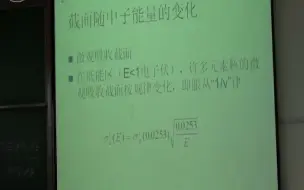 截面随中子能量的变化
微观吸收截面
在低能区（E<1电子伏），许多元素核的微
观吸收截面按规律变化，即服从“1/V”律
σₐ(E)=σₐ(0.0253)√(0.0253/E)